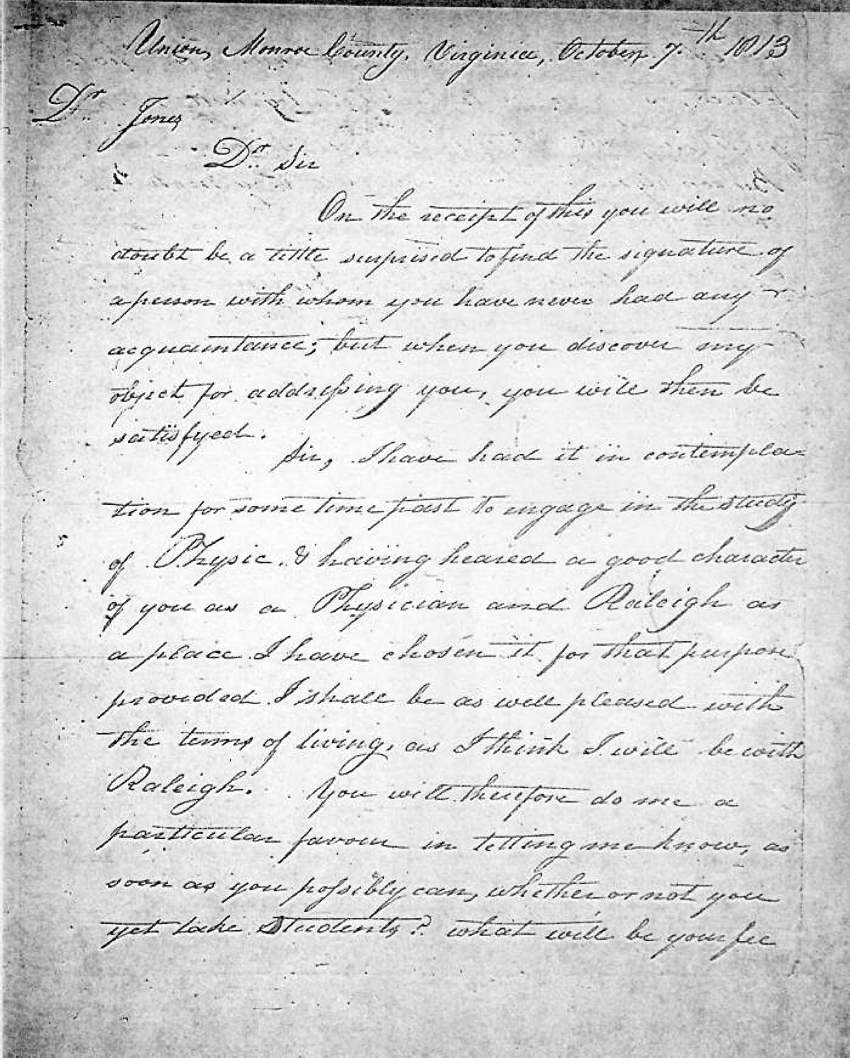 Union, Monroe County, Virginia, October 7th 1813
Dr Jones
Dr Sir
On the receipt of this you will no
doubt be a little surprised to find the signature of
a person with whom you have never had any
acquaintance; but when you discover my
object for addressing you, you will then be
satisfyed.
Sir, I have had it in contempla-
tion for some time past to engage in the study
of Physic. & having heared a good character
of you as a Physician and Raleigh as
a place I have chosen it for that purpose
provided I shall be as well pleased with
the terms of living, as I think I will be with
Raleigh. You will therefore do me a
particular favour in letting me know, as
soon as you possibly can, whether or not you
yet take Students? what will be your fee